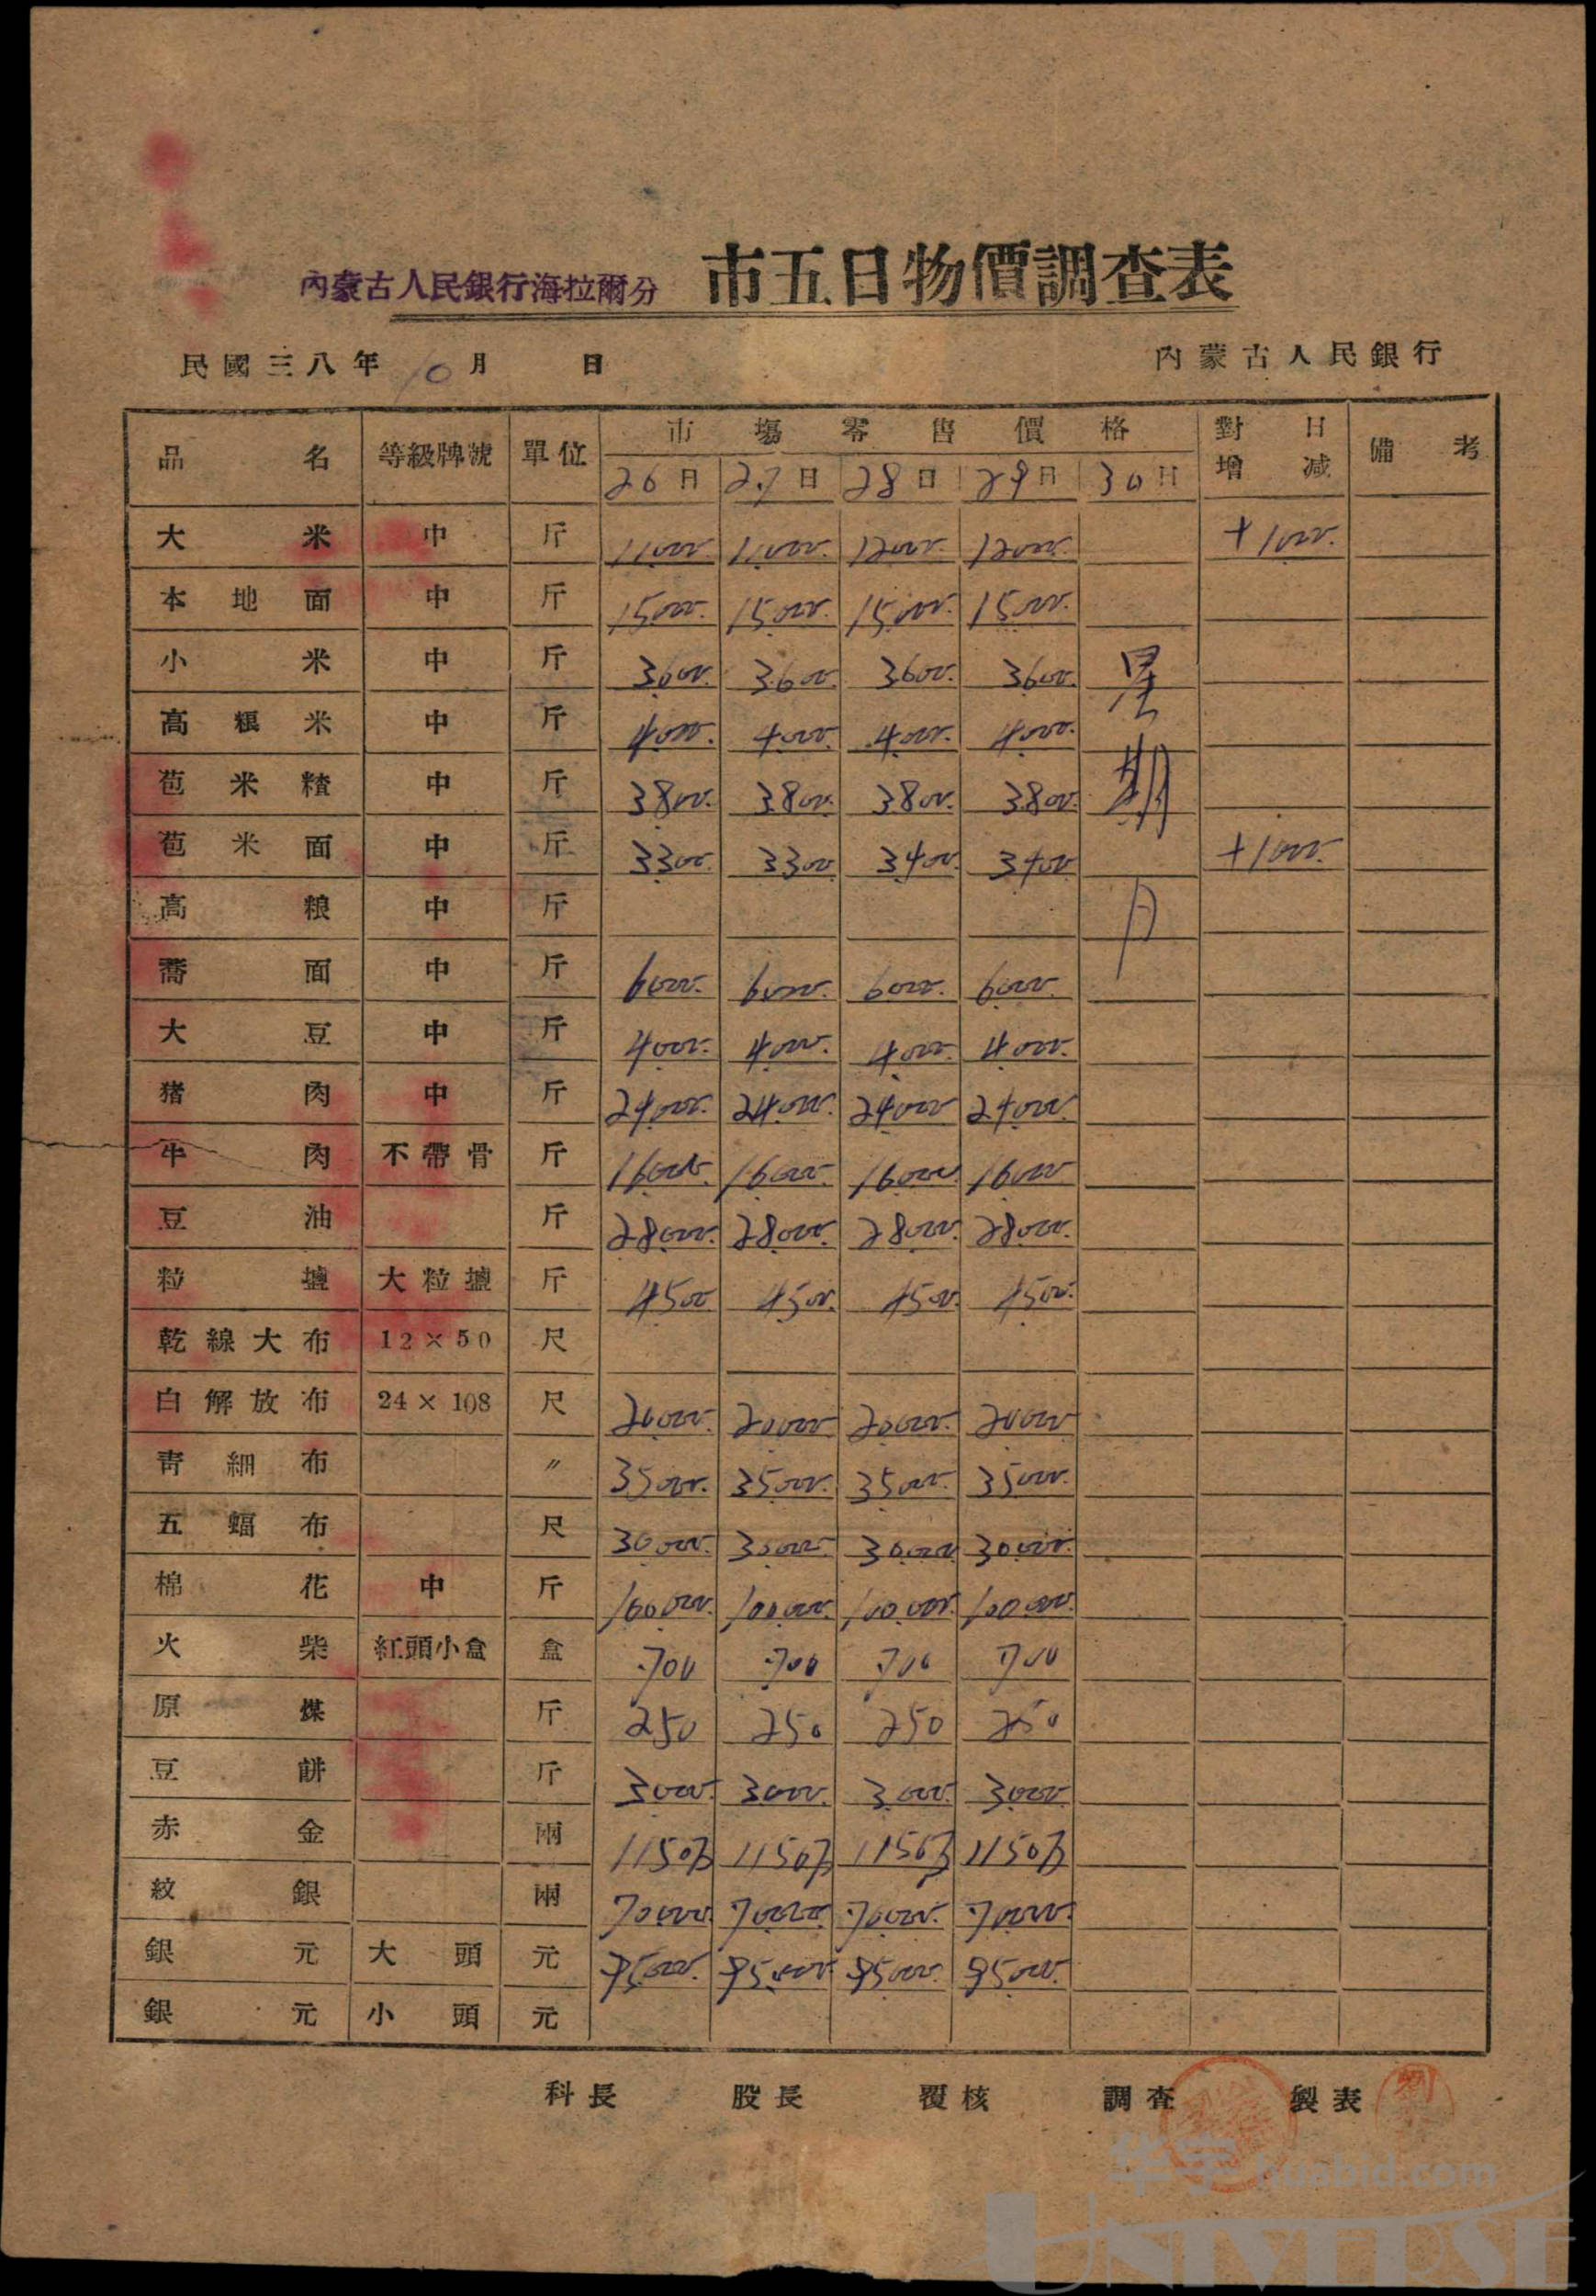 內蒙古人民銀行海拉爾分 市五日物價調查表
民國三八年 10 月 日 內蒙古人民銀行
品名 等級牌號 單位 市場零售價格 對日增減 備考
26日 27日 28日 29日 30日
大米 中 斤 11000. 11000. 12000. 12000. +1000.
本地面 中 斤 15000. 15000. 15000. 15000.
小米 中 斤 3600. 3600. 3600. 3600. 星
高粮米 中 斤 4000. 4000. 4000. 4000.
苞米糝 中 斤 3800. 3800. 3800. 3800. 期
苞米面 中 斤 3300. 3300 3400. 3400 +1000.
高粮 中 斤 日
蕎面 中 斤 6000. 6000. 6000. 6000.
大豆 中 斤 4000. 4000. 4000. 4000.
猪肉 中 斤 24000. 24000. 24000 24000.
牛肉 不帶骨 斤 16000. 16000. 16000 16000
豆油 斤 28000. 28000. 28000. 28000.
粒塩 大粒塩 斤 4500 4500. 4500. 4500.
乾線大布 12×50 尺
白解放布 24×108 尺 20000. 20000 20000. 20000
青細布 〃 35000. 35000. 35000. 35000.
五蝠布 尺 30000. 30000. 30000 30000.
棉花 中 斤 100000. 100000. 100000. 100000.
火柴 紅頭小盒 盒 700 700 700 700
原煤 斤 250 250 250 250
豆餅 斤 3000. 3000. 3000. 3000
赤金 兩 1150万 1150万 1150万 1150万
紋銀 兩 70000 70000 70000. 70000.
銀元 大頭 元 95000. 95000 95000. 95000.
銀元 小頭 元
科長 股長 覆核 調查 製表 劉
华宇 huabid.com
UNIVERSE